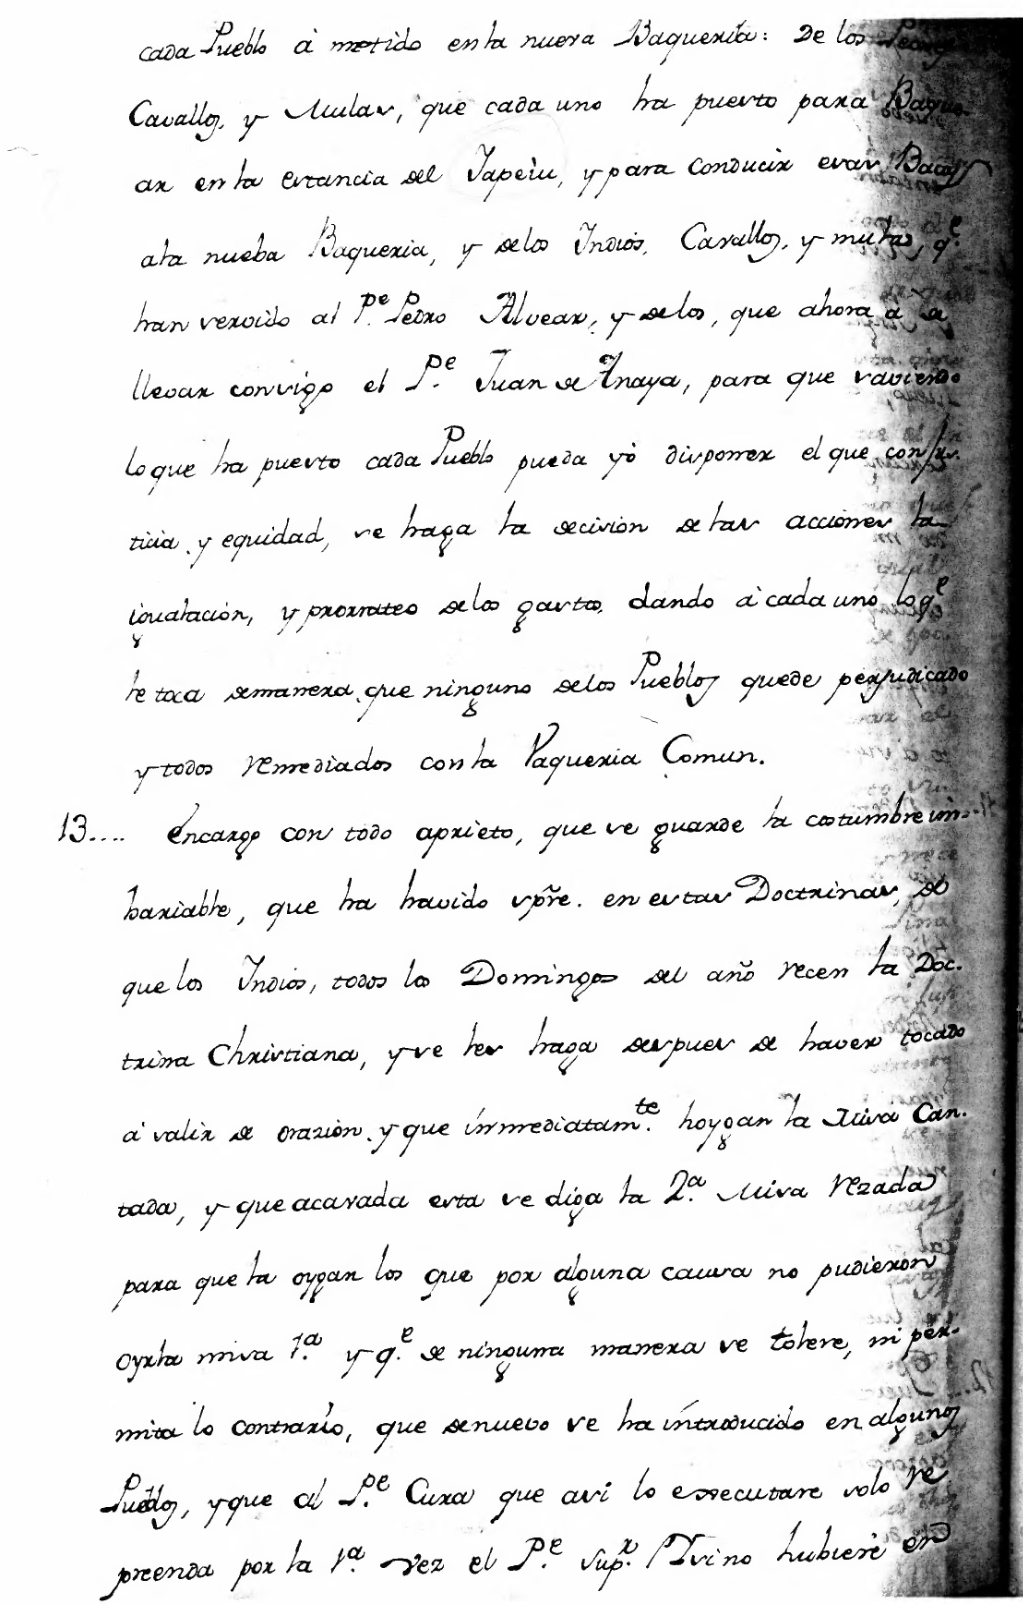 cada Pueblo á metido enla nueva Baqueria: De los Peones
Cavallos, y Mulas, que cada uno ha puesto para Baque-
ar enla estancia del Yapeiu, y para conducir esas Bacas
ala nueba Baqueria, y delos Indios, Cavallos, y mulas, q.e
han servido al P.e Pedro Alvear, y delos, que ahora á de
llevar consigo el P.e Juan de Anaya, para que saviendo
lo que ha puesto cada Pueblo pueda yó disponer el que con jus-
ticia y equidad, se haga la decision delas acciones la
igualacion, y prorrateo delos gastos, dando á cada uno lo q.e
le toca demanera que ninguno delos Pueblos quede perjudicado
y todos remediados conla Vaqueria Comun.
13.... Encargo con todo aprieto, que se guarde la costumbre im-
bariable, que ha havido spre. en estas Doctrinas, de
que los Indios, todos los Domingos del año recen la Doc-
trina Christiana, y se les haga despues de haver tocado
á salir de orazion y que inmediatam.te hoygan la Misa Can-
tada, y que acavada esta se diga la 2.a Misa Rezada
para que la oygan los que por alguna causa no pudieron
oyrla misa 1.a y q.e de ninguna manera se tolere, ni per-
mita lo contrario, que denuevo se ha introducido en algunos
Pueblos, y que al P.e Cura que asi lo executare solo re
preenda por la 1.a vez el P.e Sup.r / Y si no hubiere en